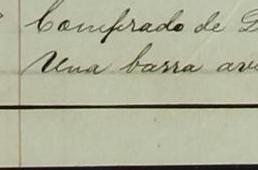 Comprado de
Una barra